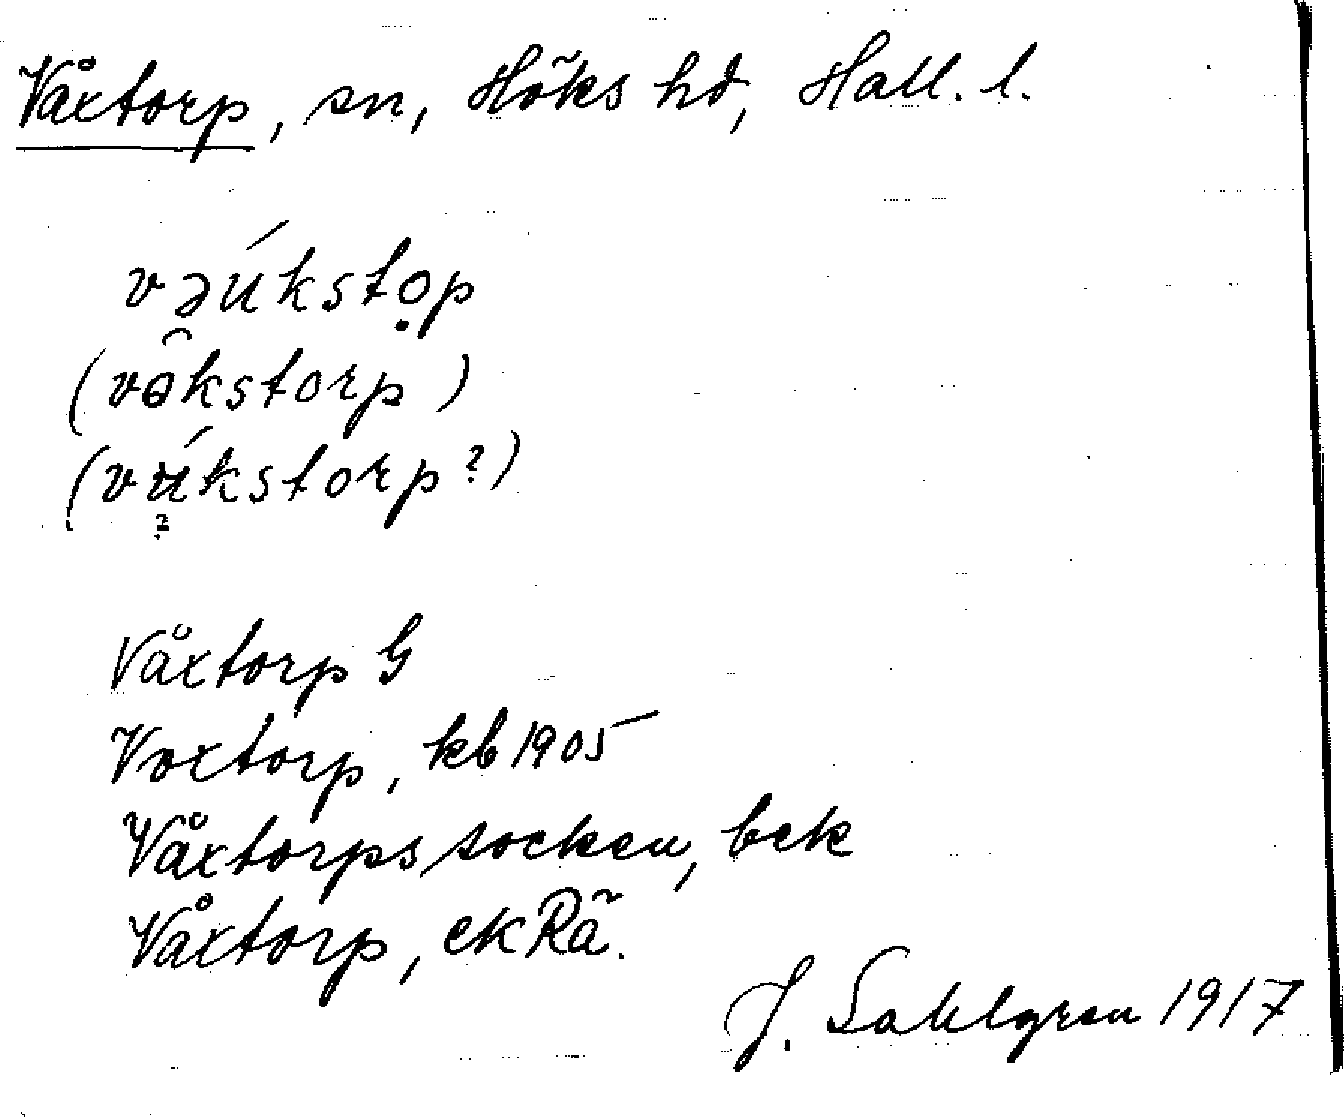 Våxtorp, sn, Höks hd, Hall. l.
vəúkstọp
(və̂kstorp)
(vú̬kstorp?)
Våxtorp G
Voxtorp, kb 1905
Våxtorps socken, bek
Våxtorp, ekRä.
J. Sahlgren 1917